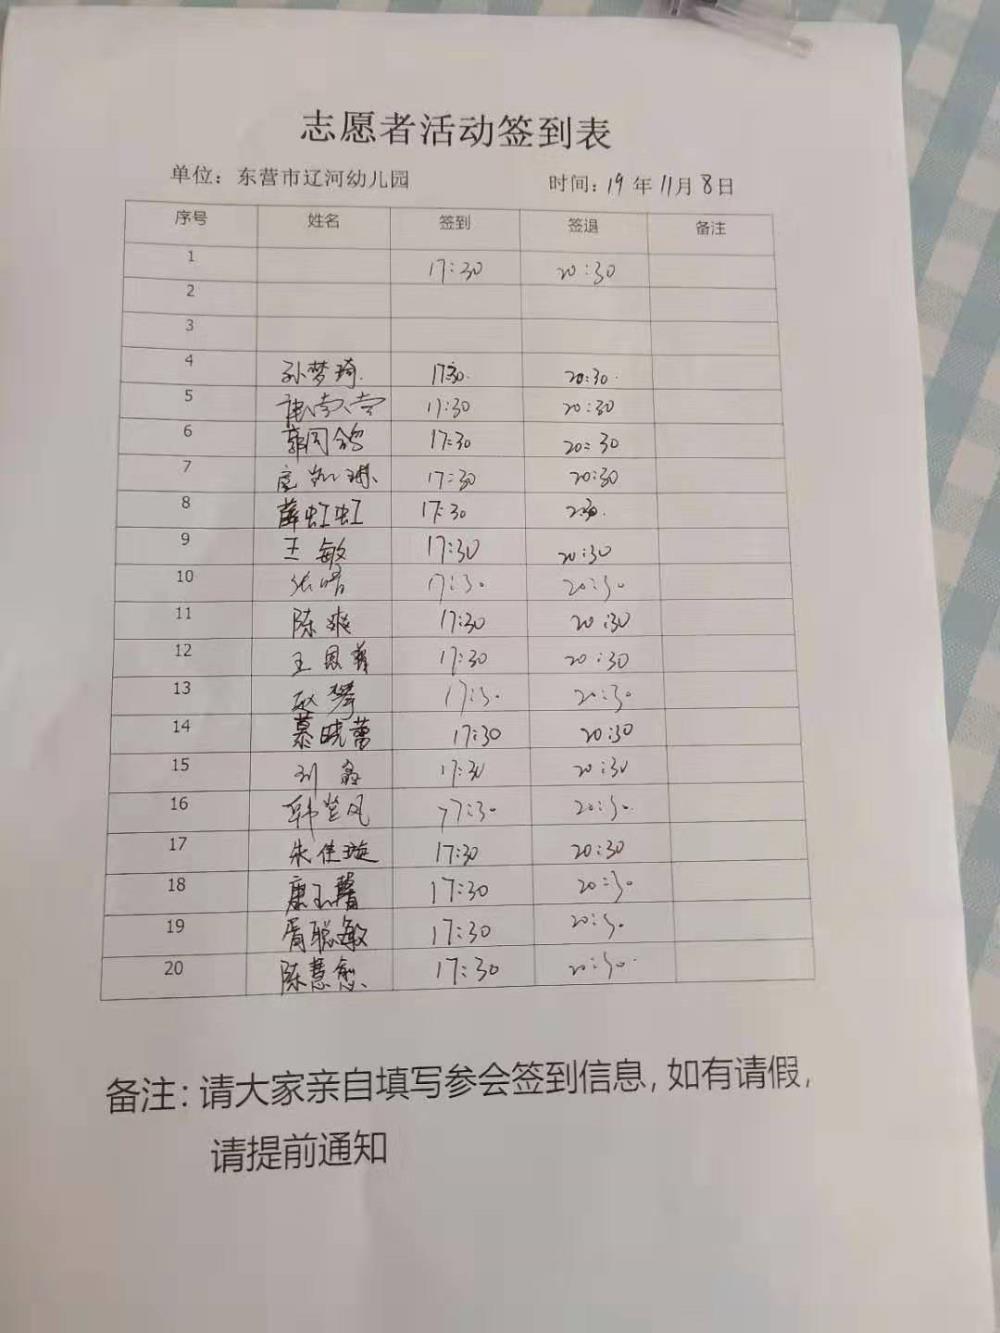 志愿者活动签到表
单位：东营市辽河幼儿园 时间：19年11月8日
序号 姓名 签到 签退 备注
1 17:30 20:30
2
3
4 孙梦琦 17:30 20:30
5 17:30 20:30
6 郭同鸽 17:30 20:30
7 17:30 20:30
8 薛虹虹 17:30
9 王敏 17:30 20:30
10 17:30 20:30
11 陈爽 17:30 20:30
12 王恩 17:30 20:30
13 赵攀 17:30 20:30
14 慕晓蕾 17:30 20:30
15 刘鑫 17:30 20:30
16 韩 风 17:30 20:30
17 朱佳璇 17:30 20:30
18 康玉馨 17:30 20:30
19 胥聪敏 17:30 20:30
20 陈慧 17:30 20:30
备注：请大家亲自填写参会签到信息，如有请假，
请提前通知